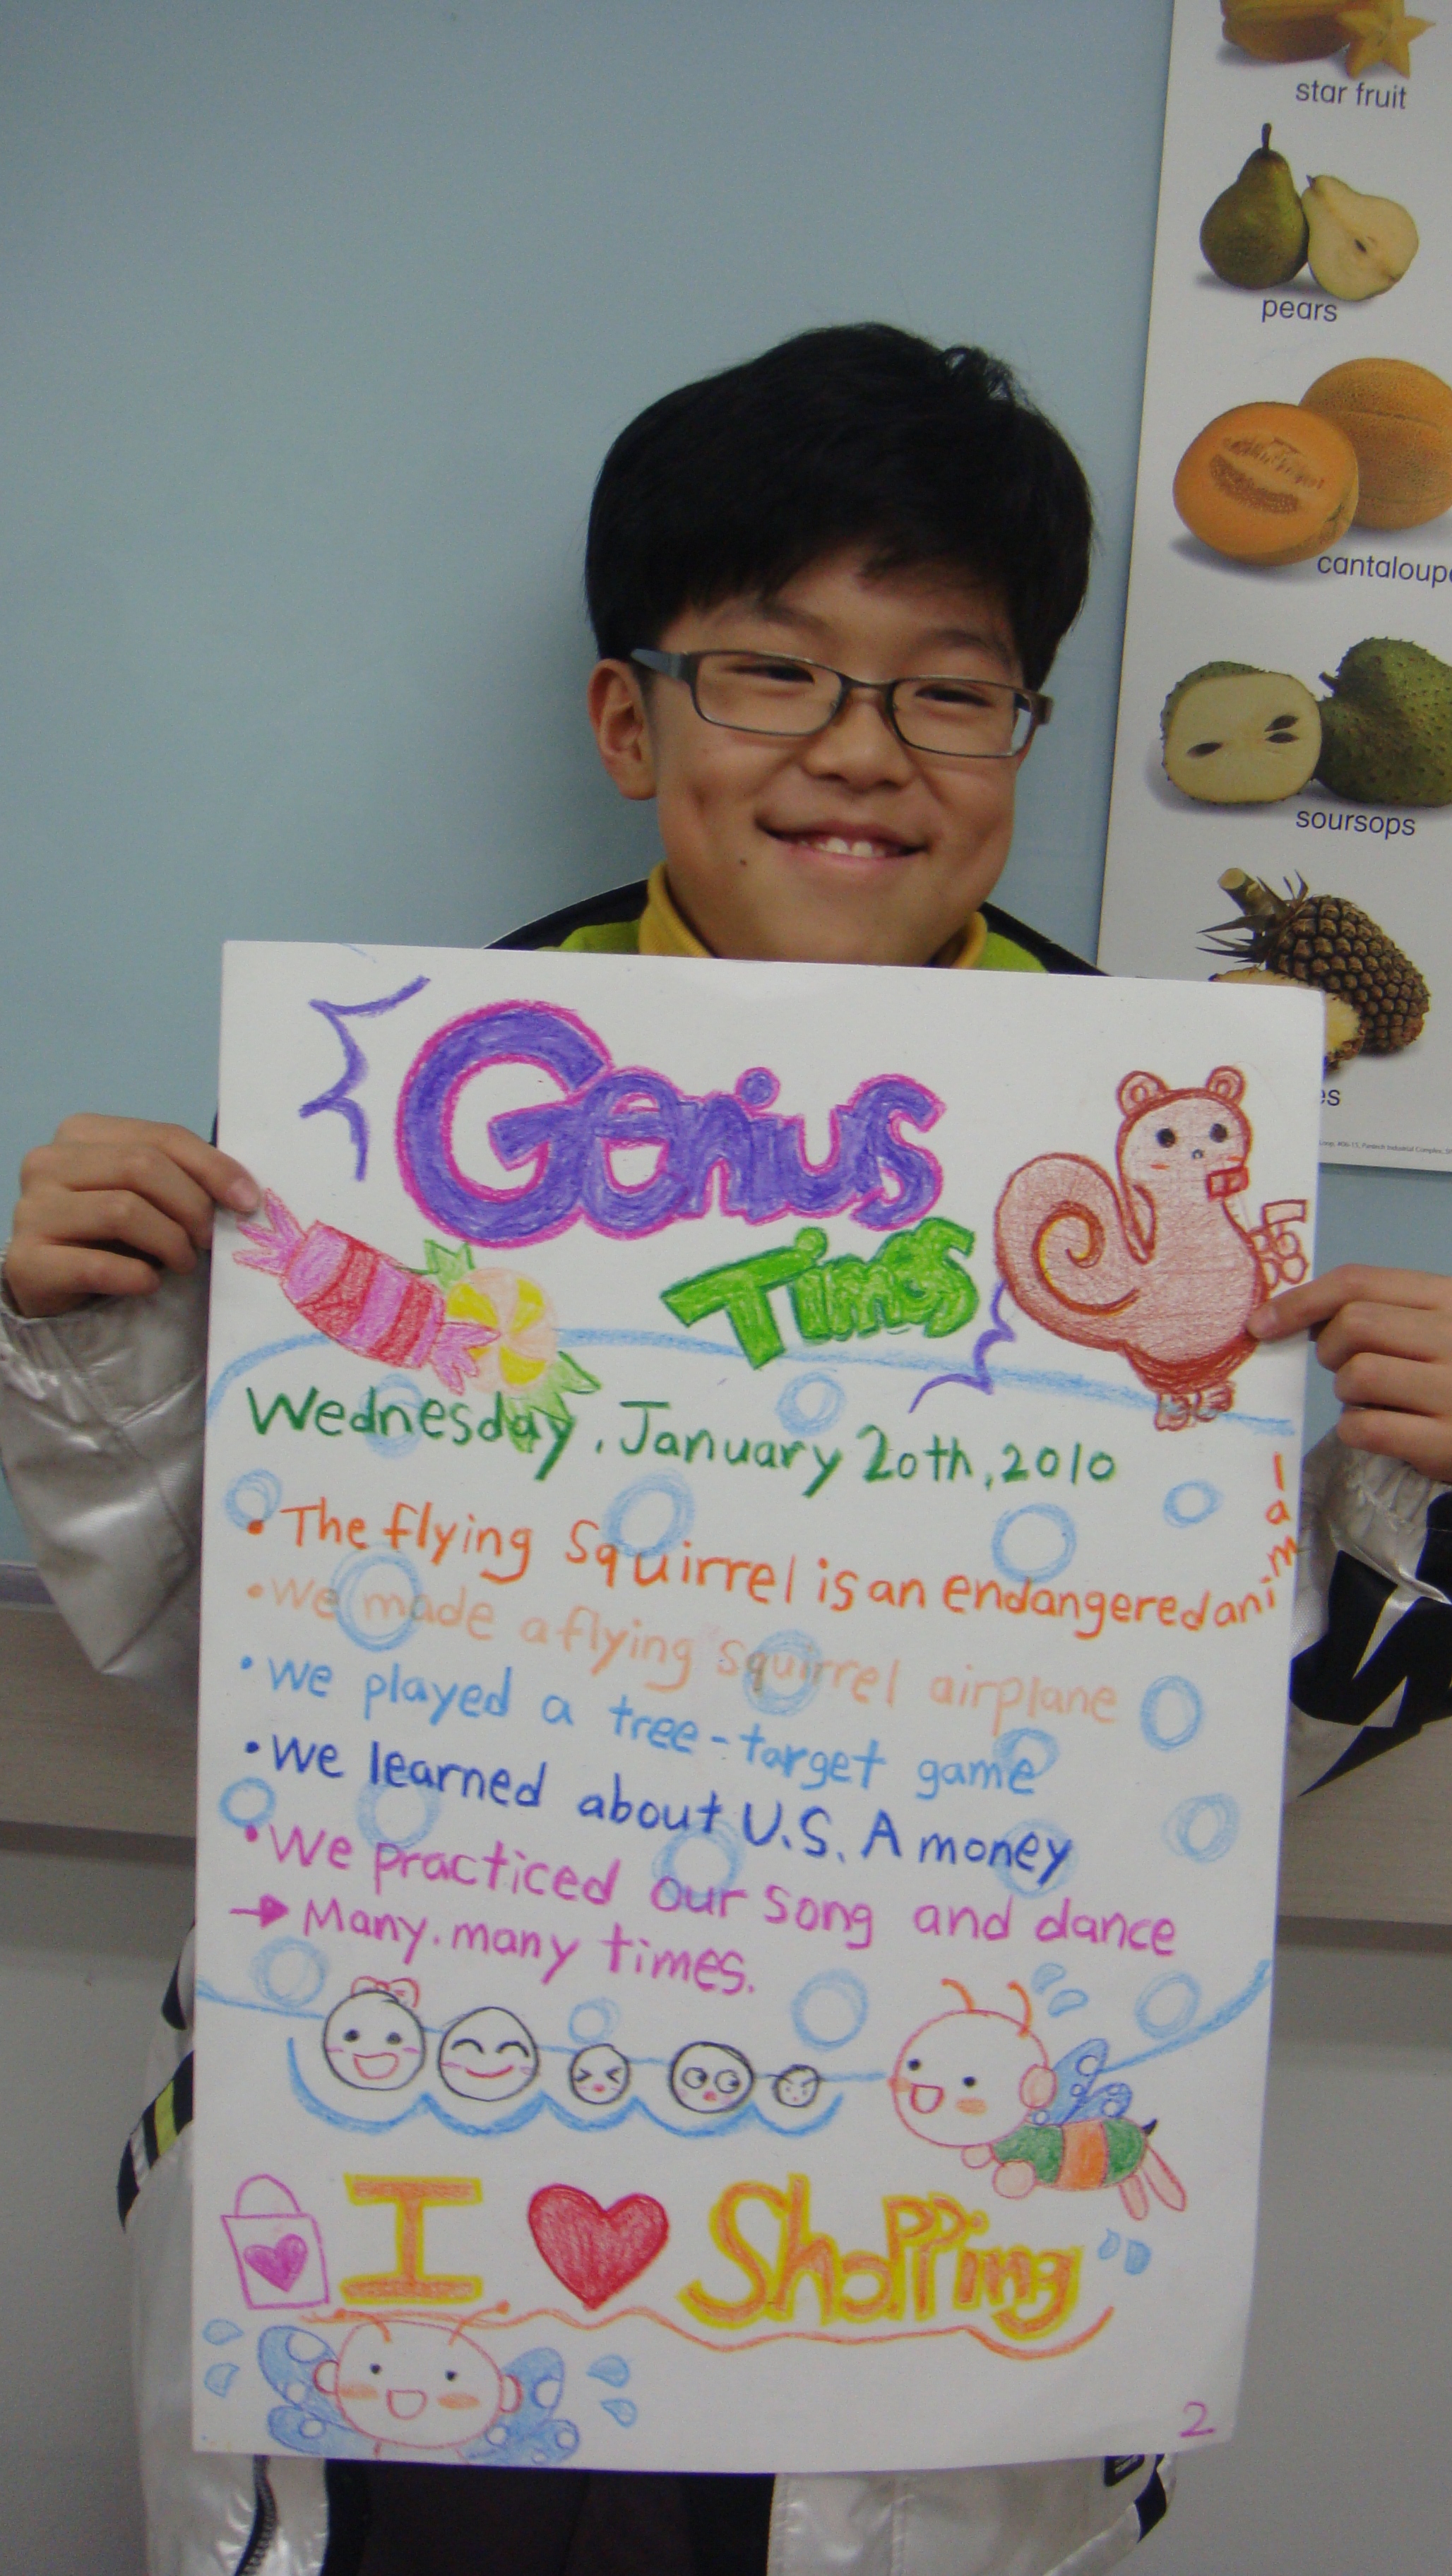 star fruit
pears
cantaloupe
soursops
es
Genius
Times
Wednesday, January 20th, 2010
• The flying Squirrel is an endangered animal
• we made a flying squirrel airplane
• we played a tree-target game
• we learned about U.S. A money
• We practiced our song and dance
→ Many, many times.
I ♥ Shopping
2